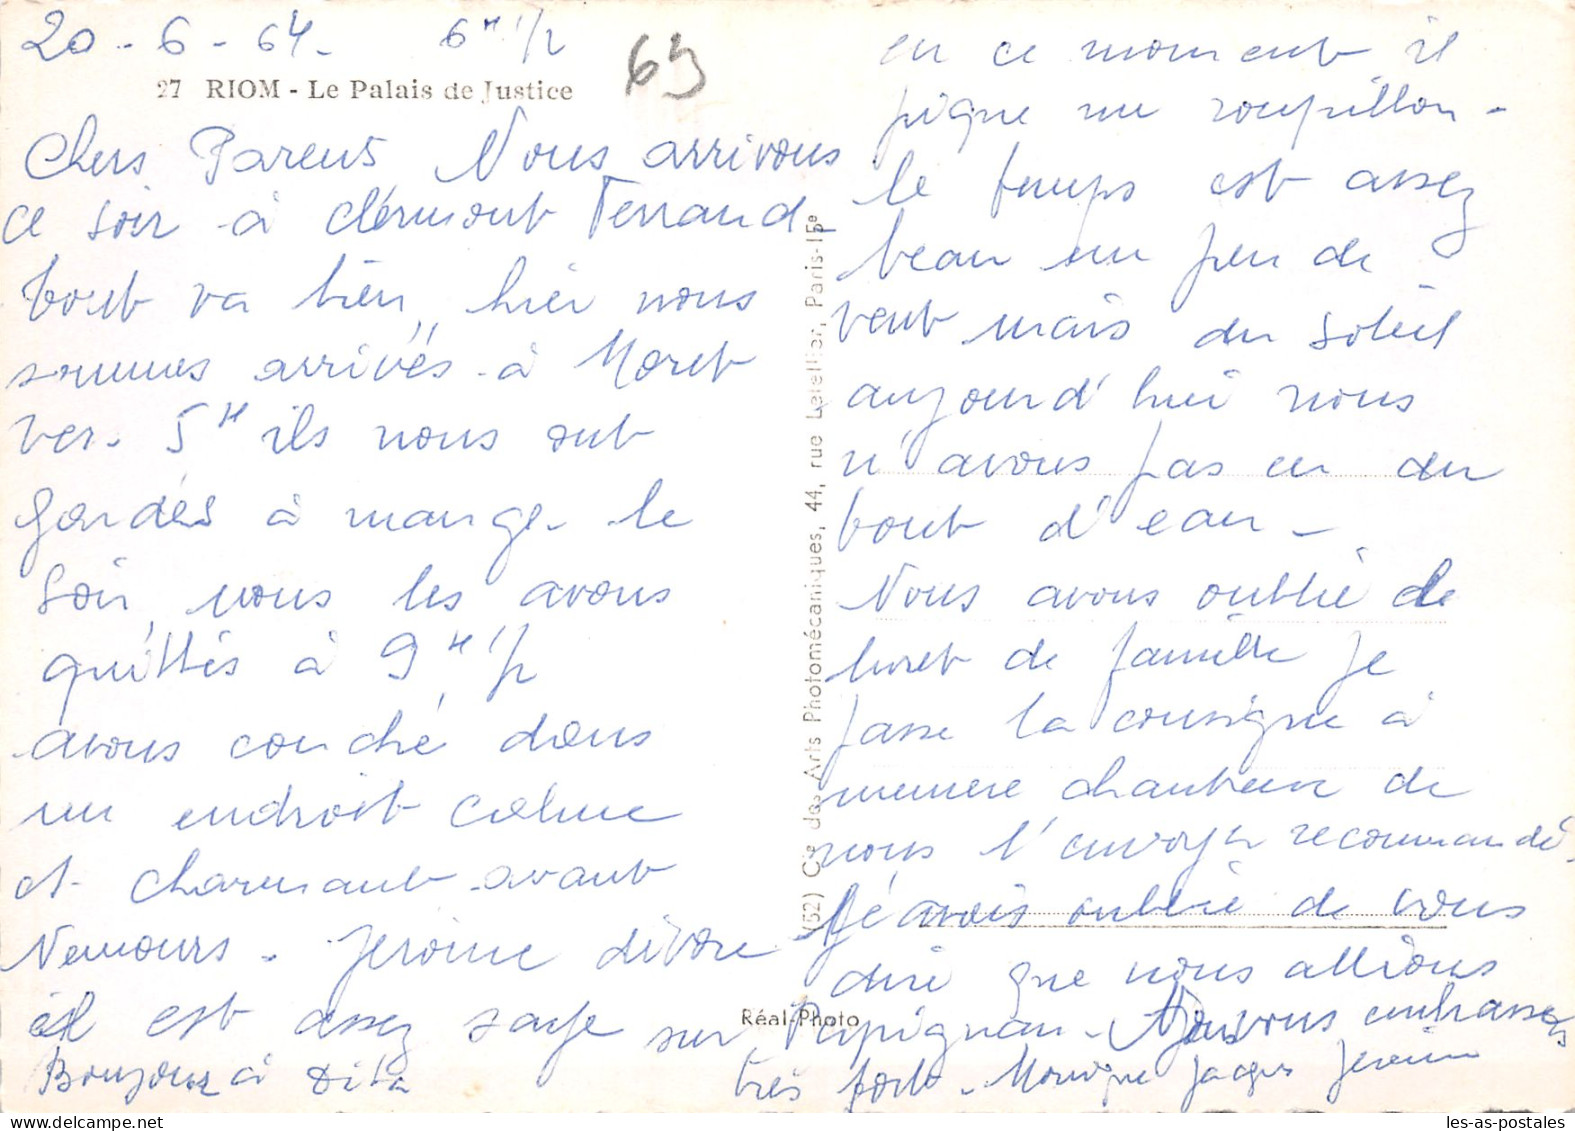 20-6-64. 6H 1/2
63
27 RIOM - Le Palais de Justice
Chers Parents Nous arrivons
ce soir à Clérmont Ferrand
tout va bien, hier nous
sommes arrivés à Moret
ver. 5H ils nous ont
gardés à mange le
soir, nous les avons
quittés à 9H 1/2
avons couché dans
un endroit calme
et charmant avant
Nemours. Jérome dévore
il est assez sage
Bonjour à Dita
en ce moment il
pique un roupillon -
le temps est assez
beau un peu de
vent mais du soleil
aujourd'hui nous
n'avons pas eu du
tout d'eau -
Nous avons oublié le
livret de famille je
passe la consigne à
memere chanteuse de
nous l'envoyer recommandé.
J'avais oublié de vous
dire que nous allions
sur Perpignan - Nous vous embrassons
très fort - Monique Jacques Jérome
(62) Cie des Arts Photomécaniques, 44, rue Letellier, Paris-15e
Réal-Photo
les-as-postales